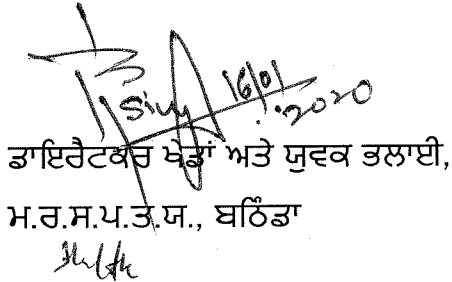 16/01
2020
ਡਾਇਰੈਟਕਰ ਖੇਡਾਂ ਅਤੇ ਯੁਵਕ ਭਲਾਈ,
ਮ.ਰ.ਸ.ਪ.ਤ.ਯ., ਬਠਿੰਡਾ